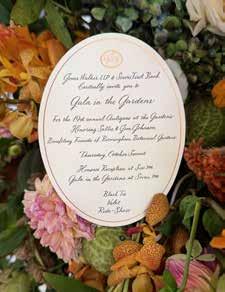 Jones Walker LLP & ServisFirst Bank
Cordially invite you to
Gala in the Gardens
For the 19th annual Antiques at the Gardens
Honoring Sallie & Jim Johnson
Benefiting Friends of Birmingham Botanical Gardens
Thursday, October
Honoree Reception at Six PM
Gala in the Gardens at Seven PM
Black Tie
Valet
Ride-Share